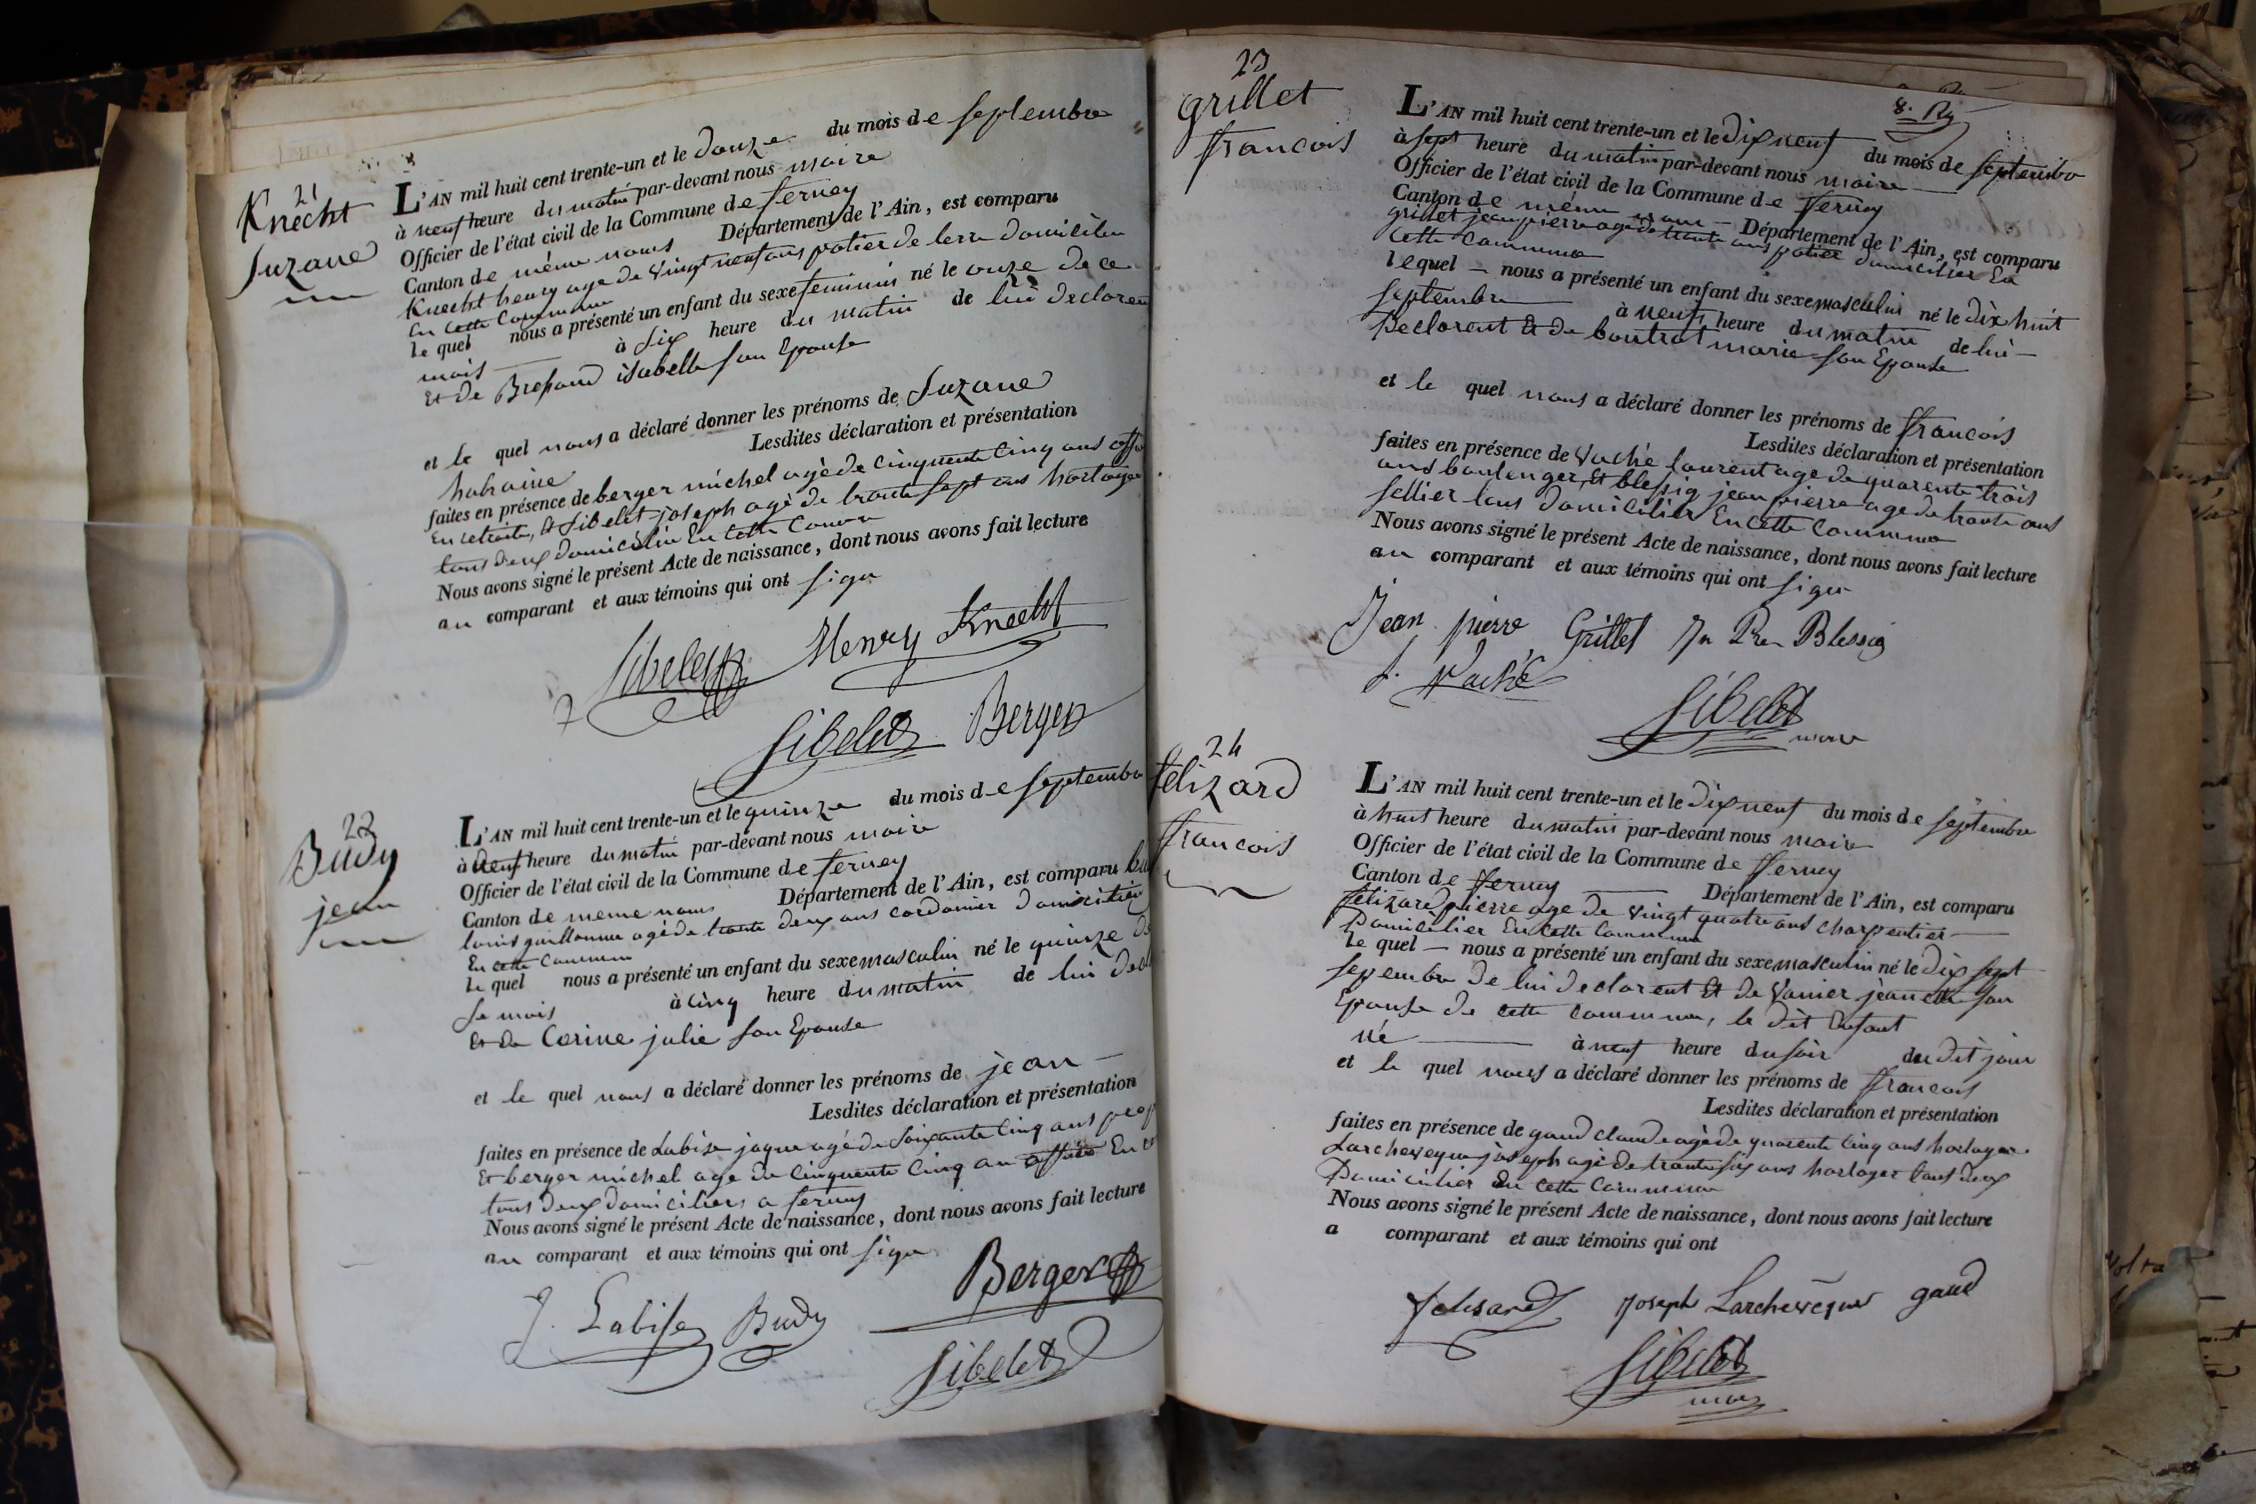 21
Knecht
Suzane
L'AN mil huit cent trente-un et le douze du mois de septembre
à neuf heure du matin par-devant nous maire
Officier de l'état civil de la Commune de ferney
Canton de même nom Département de l'Ain, est comparu
Knecht henry age de vingt neuf ans potier de terre domicilier
En cette Commune
le quel nous a présenté un enfant du sexe feminin né le onze de ce
mois à six heure du matin de lui declarent
et de isabelle son Epouse
et le quel nous a déclaré donner les prénoms de Suzane
Lesdites déclaration et présentation
faites en présence de berger michel agè de cinquente cinq ans
En retraite, et sibelet joseph agè de trente sept ans horloger
tous deux domicilie En cette Comune
Nous avons signé le présent Acte de naissance, dont nous avons fait lecture
au comparant et aux témoins qui ont signe
Sibelet Henry Knecht
Sibelet Berger
22
Budy
jean
L'AN mil huit cent trente-un et le quinze du mois de septembre
à neuf heure du matin par-devant nous maire
Officier de l'état civil de la Commune de ferney
Canton de meme nom Département de l'Ain, est comparu
louis guillaume agè de trente deux ans cordonier domicilier
En cette Commune
le quel nous a présenté un enfant du sexe masculin né le quinze
se mois à cinq heure du matin de lui
et de Corine julie son Epouse
et le quel nous a déclaré donner les prénoms de jean
Lesdites déclaration et présentation
faites en présence de Labise jaque agé de soixante cinq ans
Et berger michel age de cinquente cinq an En
tous deux domiciliers a ferney
Nous avons signé le présent Acte de naissance, dont nous avons fait lecture
au comparant et aux témoins qui ont signe
Berger
J. Labise Budy
Sibelet
23
grillet
francois
8.
L'AN mil huit cent trente-un et le dix neuf du mois de septembre
à sept heure du matin par-devant nous maire
Officier de l'état civil de la Commune de ferney
Canton de même nom Département de l'Ain, est comparu
grillet jean pierre age de trente ans potier domicilier En
cette Commune
lequel nous a présenté un enfant du sexe masculin né le dix huit
septembre à neuf heure du matin de lui
declarent Et de marie son Epouse
et le quel nous a déclaré donner les prénoms de francois
Lesdites déclaration et présentation
faites en présence de Vachè laurent age de quarente trois
ans boulenger, Et blessig jean pierre age de trente ans
sellier tous domicilier En cette Commune
Nous avons signé le présent Acte de naissance, dont nous avons fait lecture
au comparant et aux témoins qui ont signe
Jean pierre Grillet Jn Pre Blessig
Vaché
Sibelet
maire
24
felizard
francois
L'AN mil huit cent trente-un et le dix neuf du mois de septembre
à huit heure du matin par-devant nous maire
Officier de l'état civil de la Commune de ferney
Canton de ferney Département de l'Ain, est comparu
felizard pierre age de vingt quatre ans charpentier
Domicilier En cette Commune
le quel nous a présenté un enfant du sexe masculin né le dix sept
septembre de lui declarent Et de Vanier jeanette son
Epouse de cette commune, le dit Enfant
né à neuf heure du soir du dit jour
et le quel nous a déclaré donner les prénoms de francois
Lesdites déclaration et présentation
faites en présence de gaud claude agè de quarente cinq ans horloger
Larcheveque joseph agè de trente six ans horloger tous deux
Domicilier En cette Commune
Nous avons signé le présent Acte de naissance, dont nous avons fait lecture
a comparant et aux témoins qui ont
felisard Joseph Larcheveque gaud
Sibelet
maire